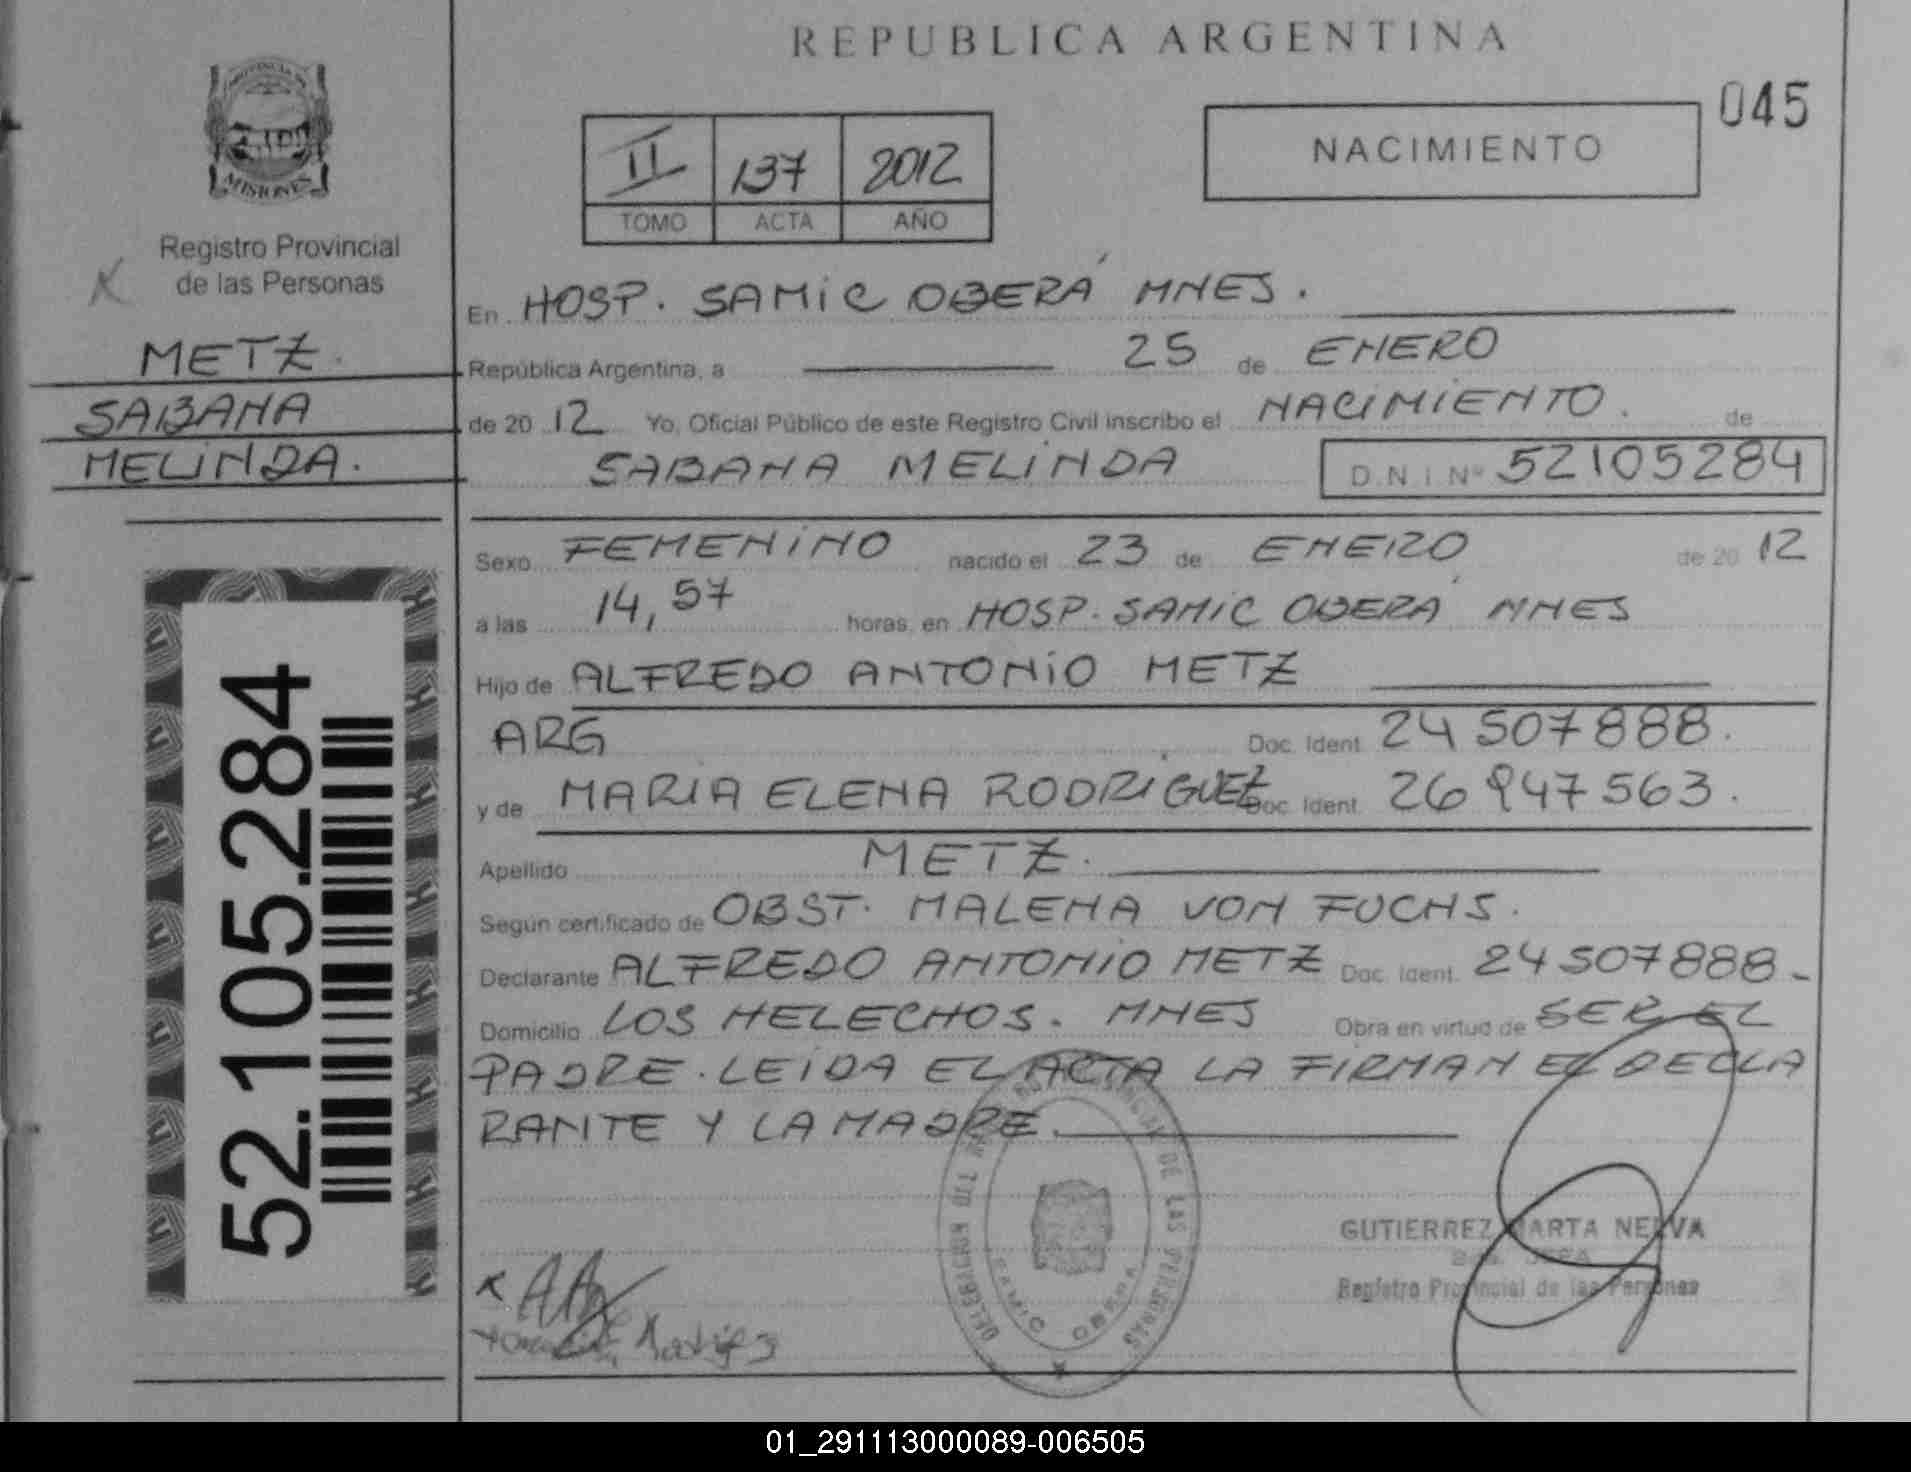 REPUBLICA ARGENTINA
045
PROVINCIA DE
MISIONES
Registro Provincial
de las Personas
METZ.
SABANA
MELINDA.
52.105.284
II 137 2012
TOMO ACTA AÑO
NACIMIENTO
En HOSP. SAMIC OBERÁ MNES.
República Argentina, a 25 de ENERO
de 20 12 Yo, Oficial Público de este Registro Civil inscribo el NACIMIENTO. de
SABANA MELINDA D.N.I Nº 52105284
Sexo FEMENINO nacido el 23 de ENERO de 20 12
a las 14,57 horas, en HOSP. SAMIC OBERÁ MNES
Hijo de ALFREDO ANTONIO METZ
ARG Doc. Ident. 24507888.
y de MARIA ELENA RODRIGUEZ Doc. Ident. 26947563.
Apellido METZ.
Según certificado de OBST. MALENA VON FUCHS.
Declarante ALFREDO ANTONIO METZ Doc. Ident. 24507888-
Domicilio LOS HELECHOS. MNES Obra en virtud de SER EL
PADRE. LEIDA EL ACTA LA FIRMAN EL DECLA
RANTE Y LA MADRE.
DE LAS PERSONAS
SAMIC OBERA
GUTIERREZ MARTA NELVA
JEFA
Registro Provincial de las Personas
01_291113000089-006505